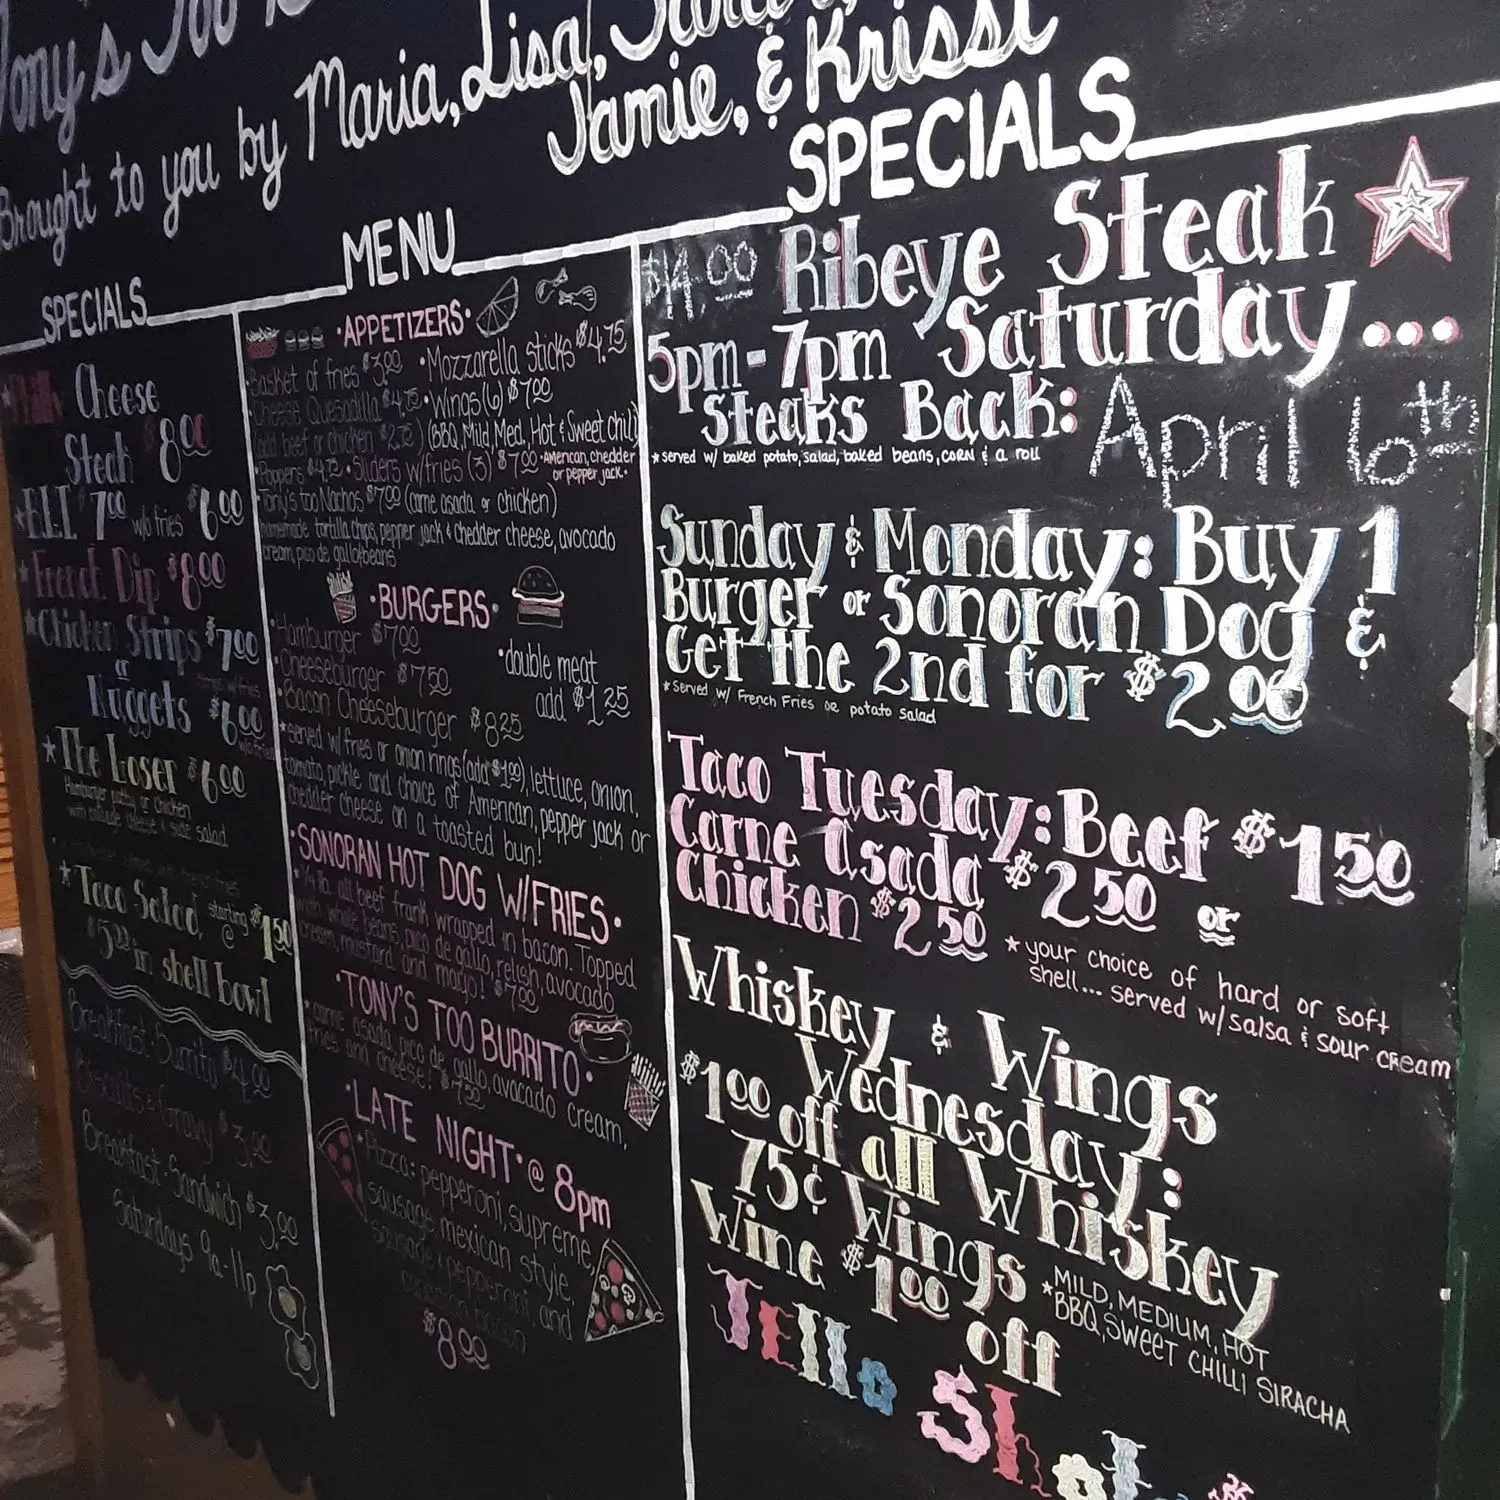 Tony's Too
Brought to you by Maria, Lisa,
Jamie, & Krissi
SPECIALS
Philly Cheese
Steak $8.00
*BLT $7.00 w/o fries $6.00
*French Dip $8.00
*Chicken Strips $7.00
or
Nuggets $6.00
w/o fries
*The Loser $6.00
Hamburger patty or chicken
with cottage cheese & side salad
*Taco Salad starting @ $1.50
in shell bowl
Breakfast Burrito $4.00
Biscuits & Gravy $3.00
Breakfast Sandwich $3.00
Saturdays 9a-11p
MENU
•APPETIZERS•
•Basket of fries $3.00 •Mozzarella sticks $4.75
•Cheese Quesadilla $4.75 •Wings(6) $7.00
(add beef or chicken $2.75) (BBQ, Mild, Med, Hot & Sweet chili)
•Poppers $4.75 •Sliders w/fries (3) $7.00 •American, chedder
or pepper jack•
•Tony's too Nachos $7.00 (carne asada or chicken)
homemade tortilla chips, pepper jack & chedder cheese, avocado
cream, pico de gallo, beans
•BURGERS•
•Hamburger $7.00
•Cheeseburger $7.50
•double meat
add $1.25
•Bacon Cheeseburger $8.25
*served w/ fries or onion rings (add $1.00), lettuce, onion,
tomato, pickle and choice of American, pepper jack or
chedder cheese on a toasted bun!
•SONORAN HOT DOG W/FRIES•
all beef frank wrapped in bacon. Topped
with whole beans, pico de gallo, relish, avocado
cream, mustard and mayo! $7.00
•TONY'S TOO BURRITO•
*carne asada, pico de gallo, avocado cream,
fries and cheese!
•LATE NIGHT• @ 8pm
*Pizza: pepperoni, supreme,
sausage, mexican style,
sausage & pepperoni, and
bacon
$8.00
SPECIALS
$14.00 Ribeye Steak
5pm-7pm Saturday...
Steaks Back: April 16th
*served w/ baked potato, salad, baked beans, corn & a roll
Sunday & Monday: Buy 1
Burger or Sonoran Dog &
Get the 2nd for $2.00
*Served w/ French Fries or potato salad
Taco Tuesday: Beef $1.50
Carne asada $2.50 or
Chicken $2.50
*your choice of hard or soft
shell... served w/salsa & sour cream
Whiskey & Wings
Wednesday:
$1.00 off all Whiskey
75¢ Wings
*MILD, MEDIUM, HOT
BBQ, SWEET CHILLI SIRACHA
Wine $1.00 off
Jello Shots